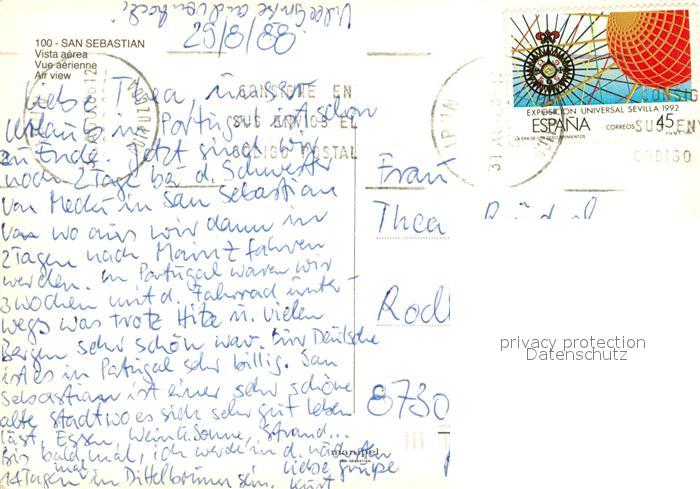 Viele Grüße auch von
29/8/88
100 - SAN SEBASTIAN
Vista aérea
Vue aérienne
Air view
Liebe Thea, unser
Urlaub in Portugal ist schon
zu Ende. Jetzt sind wir
noch 2 Tage bei d. Schwester
von in San Sebastian
von wo aus wir dann in
2 Tagen nach Mainz fahren
werden. In Portugal waren wir
3 Wochen mit d. Fahrrad unter-
wegs was trotz Hitze u. vielen
Bergen sehr schön war. Für Deutsche
ist es in Portugal sehr billig. San
Sebastian ist eine sehr schöne
alte Stadt wo es sich sehr gut leben
läst, Essen, Wein u. Sonne, Strand...
Bis bald mal, ich werde in d. nächsten
14 Tagen mal in Dittelbrunn sein. Liebe Grüße
Kurt
manipel
SAN SEBASTIAN
CONSIGNE EN
SUS ENVIOS EL
CODIGO POSTAL
IRUN
31 A
CONSIG
SUS ENV
CODIGO
EXPOSICION UNIVERSAL SEVILLA 1992
ESPAÑA CORREOS 45
LA ERA DE LOS DESCUBRIMIENTOS
Frau
Thea
8730
privacy protection
Datenschutz